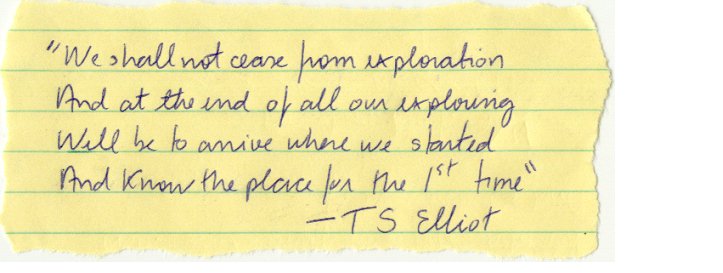 "We shall not cease from exploration
And at the end of all our exploring
Will be to arrive where we started
And know the place for the 1st time"
—TS Elliot